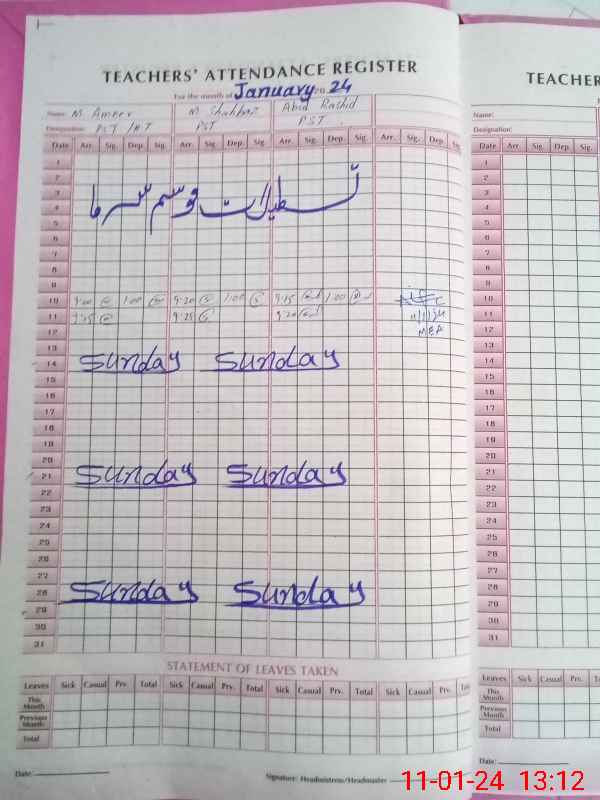 TEACHERS' ATTENDANCE REGISTER
For the month of January 20 24
Name: M Ameer M Shahbaz Abid Rashid
Designation: PST / HT PST PST
Date Arr. Sig. Dep. Sig. Arr. Sig. Dep. Sig. Arr. Sig. Dep. Sig. Arr. Sig. Dep. Sig.
1
2
3
تعطیلات موسم سرما
4
5
6
7
8
9
10 9:20 1:00 9:20 1:00 9:15 1:00
11 9:25 9:25 9:20 11/1/24
12 MEA
13
14 Sunday Sunday
15
16
17
18
19
20
21 Sunday Sunday
22
23
24
25
26
27
28 Sunday Sunday
29
30
31
STATEMENT OF LEAVES TAKEN
Leaves Sick Casual Prv. Total Sick Casual Prv. Total Sick Casual Prv. Total Sick Casual Prv. Total
This Month
Previous Month
Total
Date:
Signature: Headmistress/Headmaster
TEACHER
Name:
Designation:
Date Arr. Sig. Dep. Sig. Arr.
1
2
3
4
5
6
7
8
9
10
11
12
13
14
15
16
17
18
19
20
21
22
23
24
25
26
27
28
29
30
31
Leaves Sick Casual Prv. Total Sick
This Month
Previous Month
Total
Date:
11-01-24 13:12